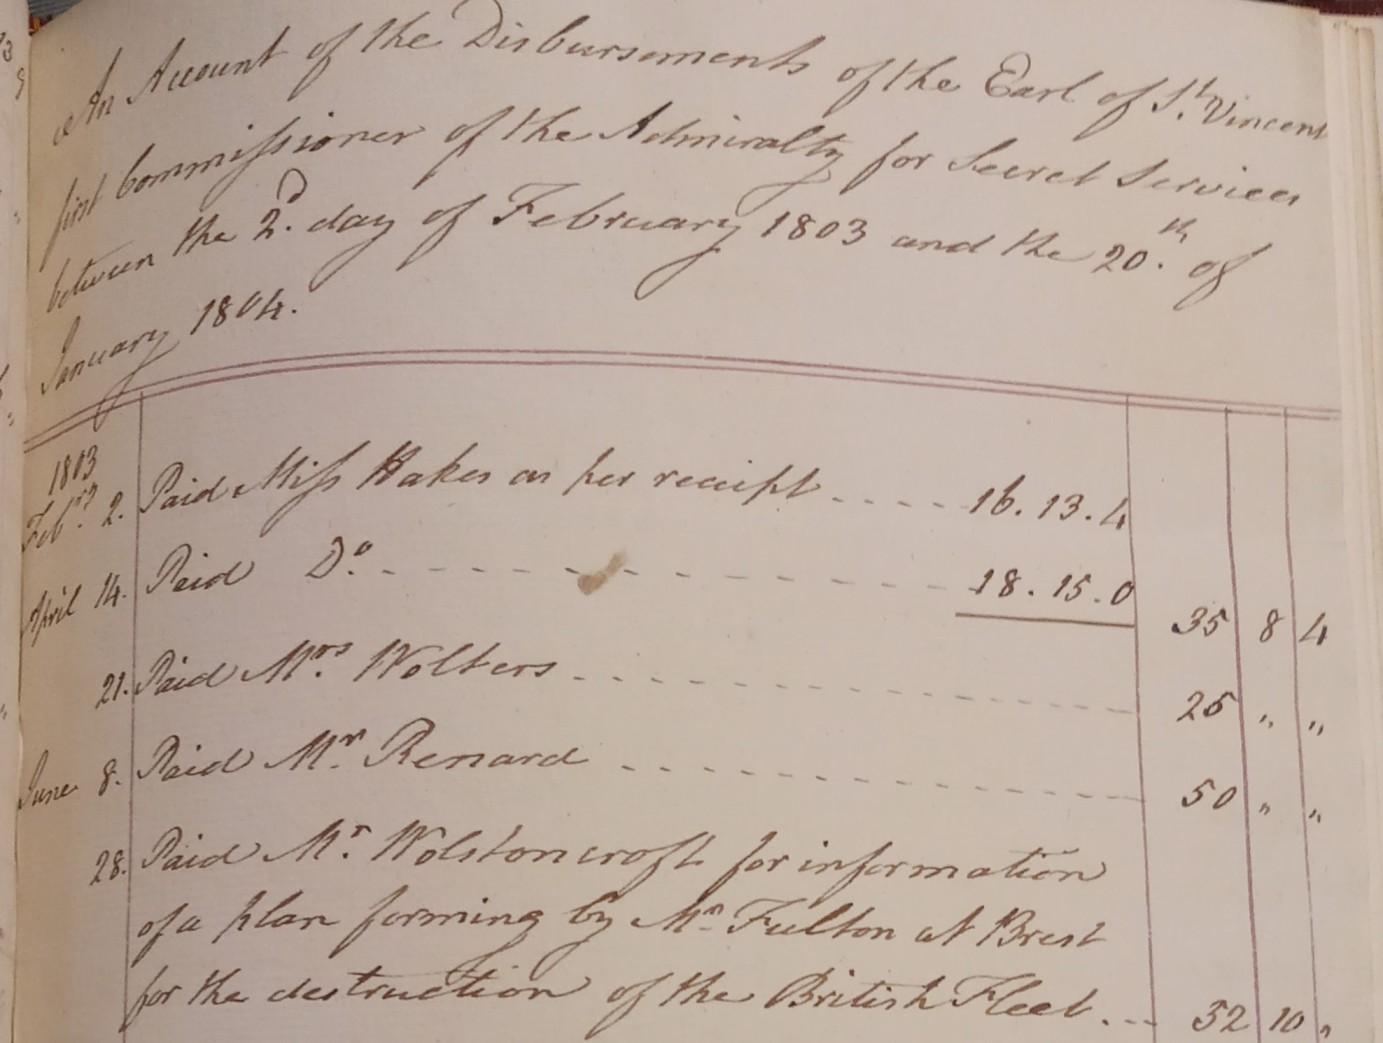 An Account of the Disbursements of the Earl of St. Vincent
first Commissioner of the Admiralty for Secret Services
between the 2.d day of February 1803 and the 20.th of
January 1804.
1803
Feb.ry 2. Paid Miss Hakes as per receipt ---- 16.13.4
April 14. Paid Do. ---- 18.15.0 35 8 4
21. Paid Mrs. Wolters ---- 25 " "
June 8. Paid Mr. Renard ---- 50 " "
28. Paid Mr. Wolstoncroft for information
of a plan forming by Mr. Fulton at Brest
for the destruction of the British Fleet --- 52 10 "